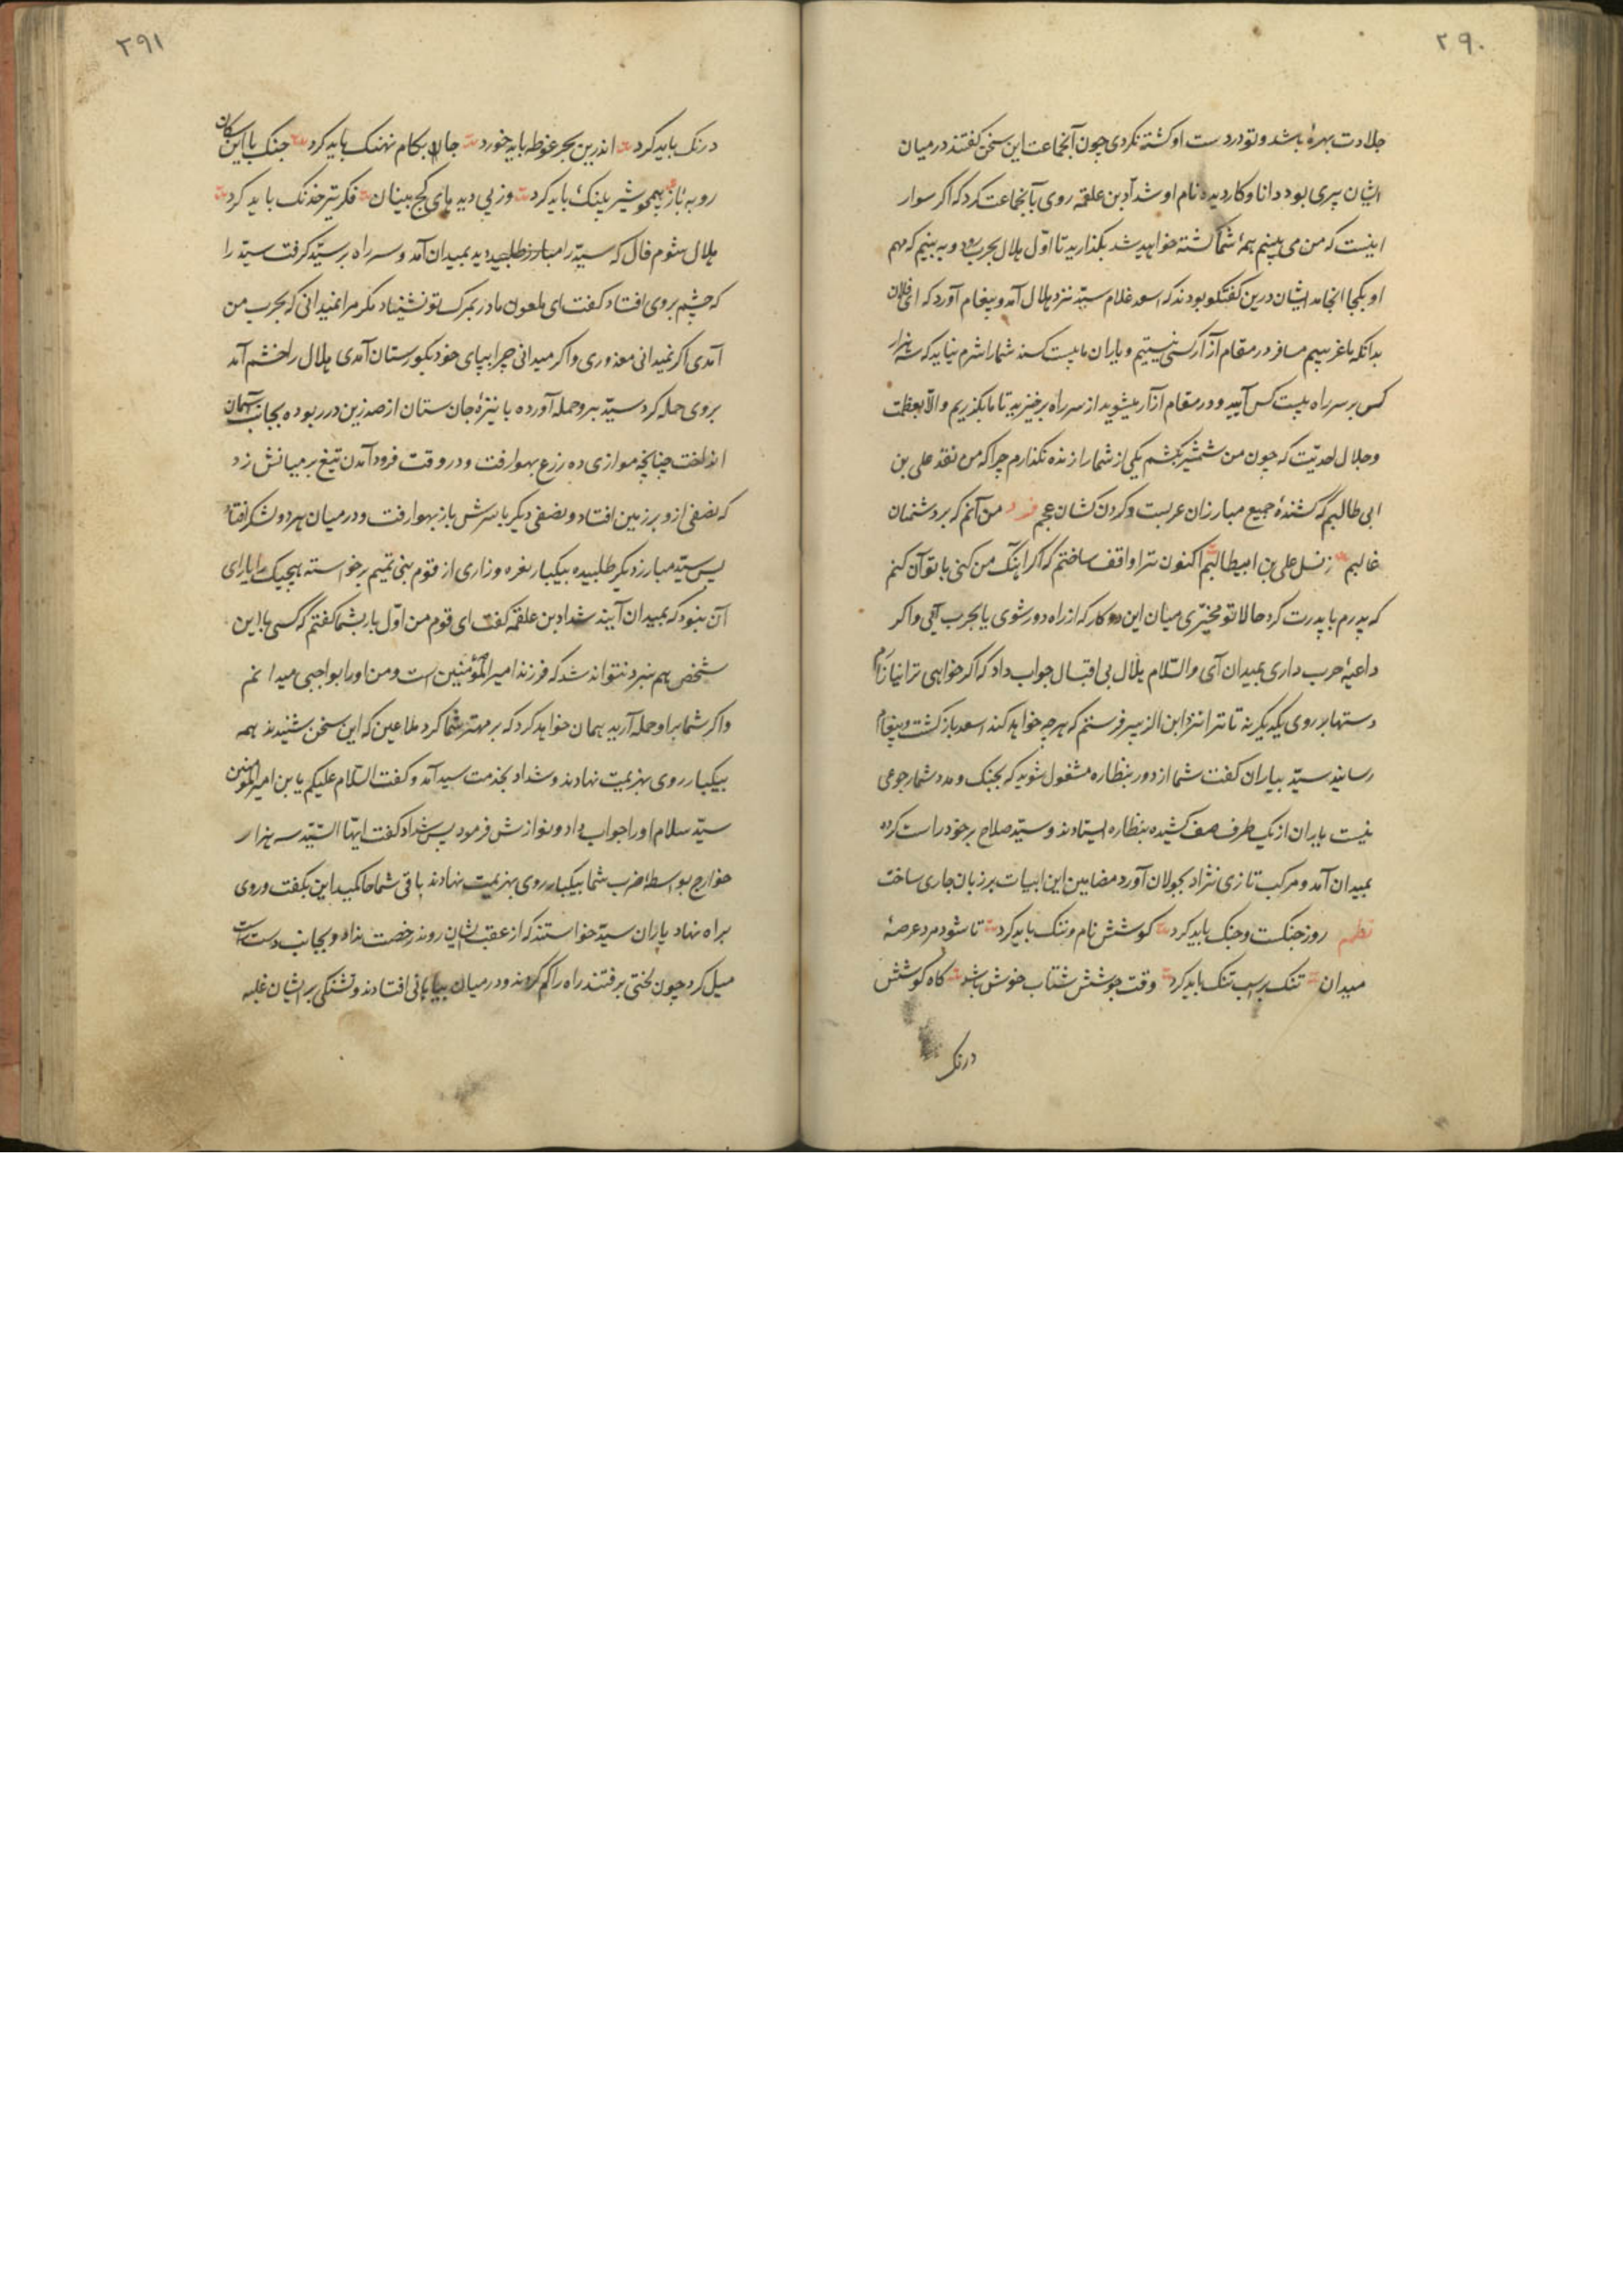 ۲۹۰
جلادت بهرهٔ باشد و تو در دست او کشته نکردی چون آنجماعت این سخن کفتند در میان
ایشان پیری بود دانا و کاردیده نام او شداد بن علقمه روی بآنجماعت کرد که اکر سوار
اینست که من می بینم همهٔ شما کشته خواهید شد بکذارید تا اوّل هلال بحرب رود و به بینیم که مهم
او بکجا انجامد ایشان درین کفتکو بودند که اسعد غلام سیّد نزد هلال آمد و پیغام آورد که ای فلان
بدانکه ما غریبیم مسافر در مقام آزار کسی نیستیم و یاران ما بیست کسند شما را شرم نیاید که سه هزار
کس بر سر راه بیست کس آیید و در مقام ازار میشوید از سر راه برخیزید تا ما بکذریم و الّا بعظمت
و جلال احدیّت که چون من شمشیر بکشم یکی از شما را زنده نکذارم چرا که من نقد علی بن
ابی طالبم که کشندهٔ جمیع مبارزان عربست و کردن کشان عجم فرد من آنم که بر دشمنان
غالبم ز نسل علی بن ابیطالبم اکنون ترا واقف ساختم که اکر اهنک من کنی با تو آن کنم
که پدرم با پدرت کرد حالا تو مخیّری میان این دو کار که از راه دور شوی یا بحرب آئی و اکر
داعیهٔ حرب داری بمیدان آی والسّلام هلال بی اقبال جواب داد که اکر خواهی ترا نیازارم
دستها بر روی یکدیکر نه تا ترا نزد ابن الزبیر فرستم که هر چه خواهد کند اسعد باز کشت و پیغام
رسانید سیّد بیاران کفت شما از دور بنظاره مشغول شوید که بجنک و مدد شما رجوعی
نیست یاران از یک طرف صف کشیده بنظاره ایستادند و سیّد صلاح بر خود راست کرده
بمیدان آمد و مرکب تازی نژاد بجولان آورد مضامین این ابیات بر زبان جاری ساخت
نظم روز جنکست و جنک باید کرد کوشش نام و ننک باید کرد تا شود مرد عرصهٔ
میدان تنک بر اسب تنک باید کرد وقت جوشش شتاب خوش باشد کاه کوشش
درنک
۲۹۱
درنک باید کرد اندرین بحر غوطه باید خورد جان بکام نهنک باید کرد جنک با این سکان
روبه باز همچو شیر و پلنک باید کرد وز پی دیدهای کج بینان فکر تیر خدنک باید کرد
هلال شوم فال که سیّد را مبارز طلبیده دید بمیدان آمد و سر راه بر سیّد کرفت سیّد را
که چشم بر وی افتاد کفت ای ملعون مادر بمرک تو نشیناد مکر مرا نمیدانی که بحرب من
آمدی اکر نمیدانی معذوری و اکر میدانی چرا بپای خود بکورستان آمدی هلال را خشم آمد
بر وی حمله کرد سیّد برو حمله آورده با نیزهٔ جان ستان از صدر زین در ربوده بجانب آسمان
انداخت چنانچه موازی ده زرع بهوا رفت و در وقت فرود آمدن تیغ بر میانش زد
که نصفی ازو بر زمین افتاد و نصفی دیکر با سرش باز بهوا رفت و در میان هر دو لشکر افتاد
پس سیّد مبارز دیکر طلبیده بیکبار نعره و زاری از قوم بنی تمیم برخواسته هیچیک را یارای
آن نبود که بمیدان آیند شداد بن علقمه کفت ای قوم من اوّل بار بشما کفتم که کسی با این
شخص هم نبرد نتواند شد که فرزند امیر المؤمنین است و من او را بواجبی میدانم
و اکر شما بر او حمله آرید همان خواهد کرد که بر مهتر شما کرد ملاعین که این سخن شنیدند همه
بیکبار روی بهزیمت نهادند و شداد بخدمت سید آمد و کفت السّلام علیکم یا بن امیر المؤمنین
سیّد سلام او را جواب داد و نوازش فرمود پس شداد کفت ایّها السّید سه هزار
خوارج بواسطهٔ ضرب شما بیکبار روی بهزیمت نهادند باقی شما حاکمید این بکفت و روی
براه نهاد یاران سیّد خواستند که از عقب ایشان روند رخصت نداد و بجانب دست راست
میل کرد چون لختی برفتند راه را کم کردند و در میان بیابانی افتادند و تشنکی بر ایشان غلبه